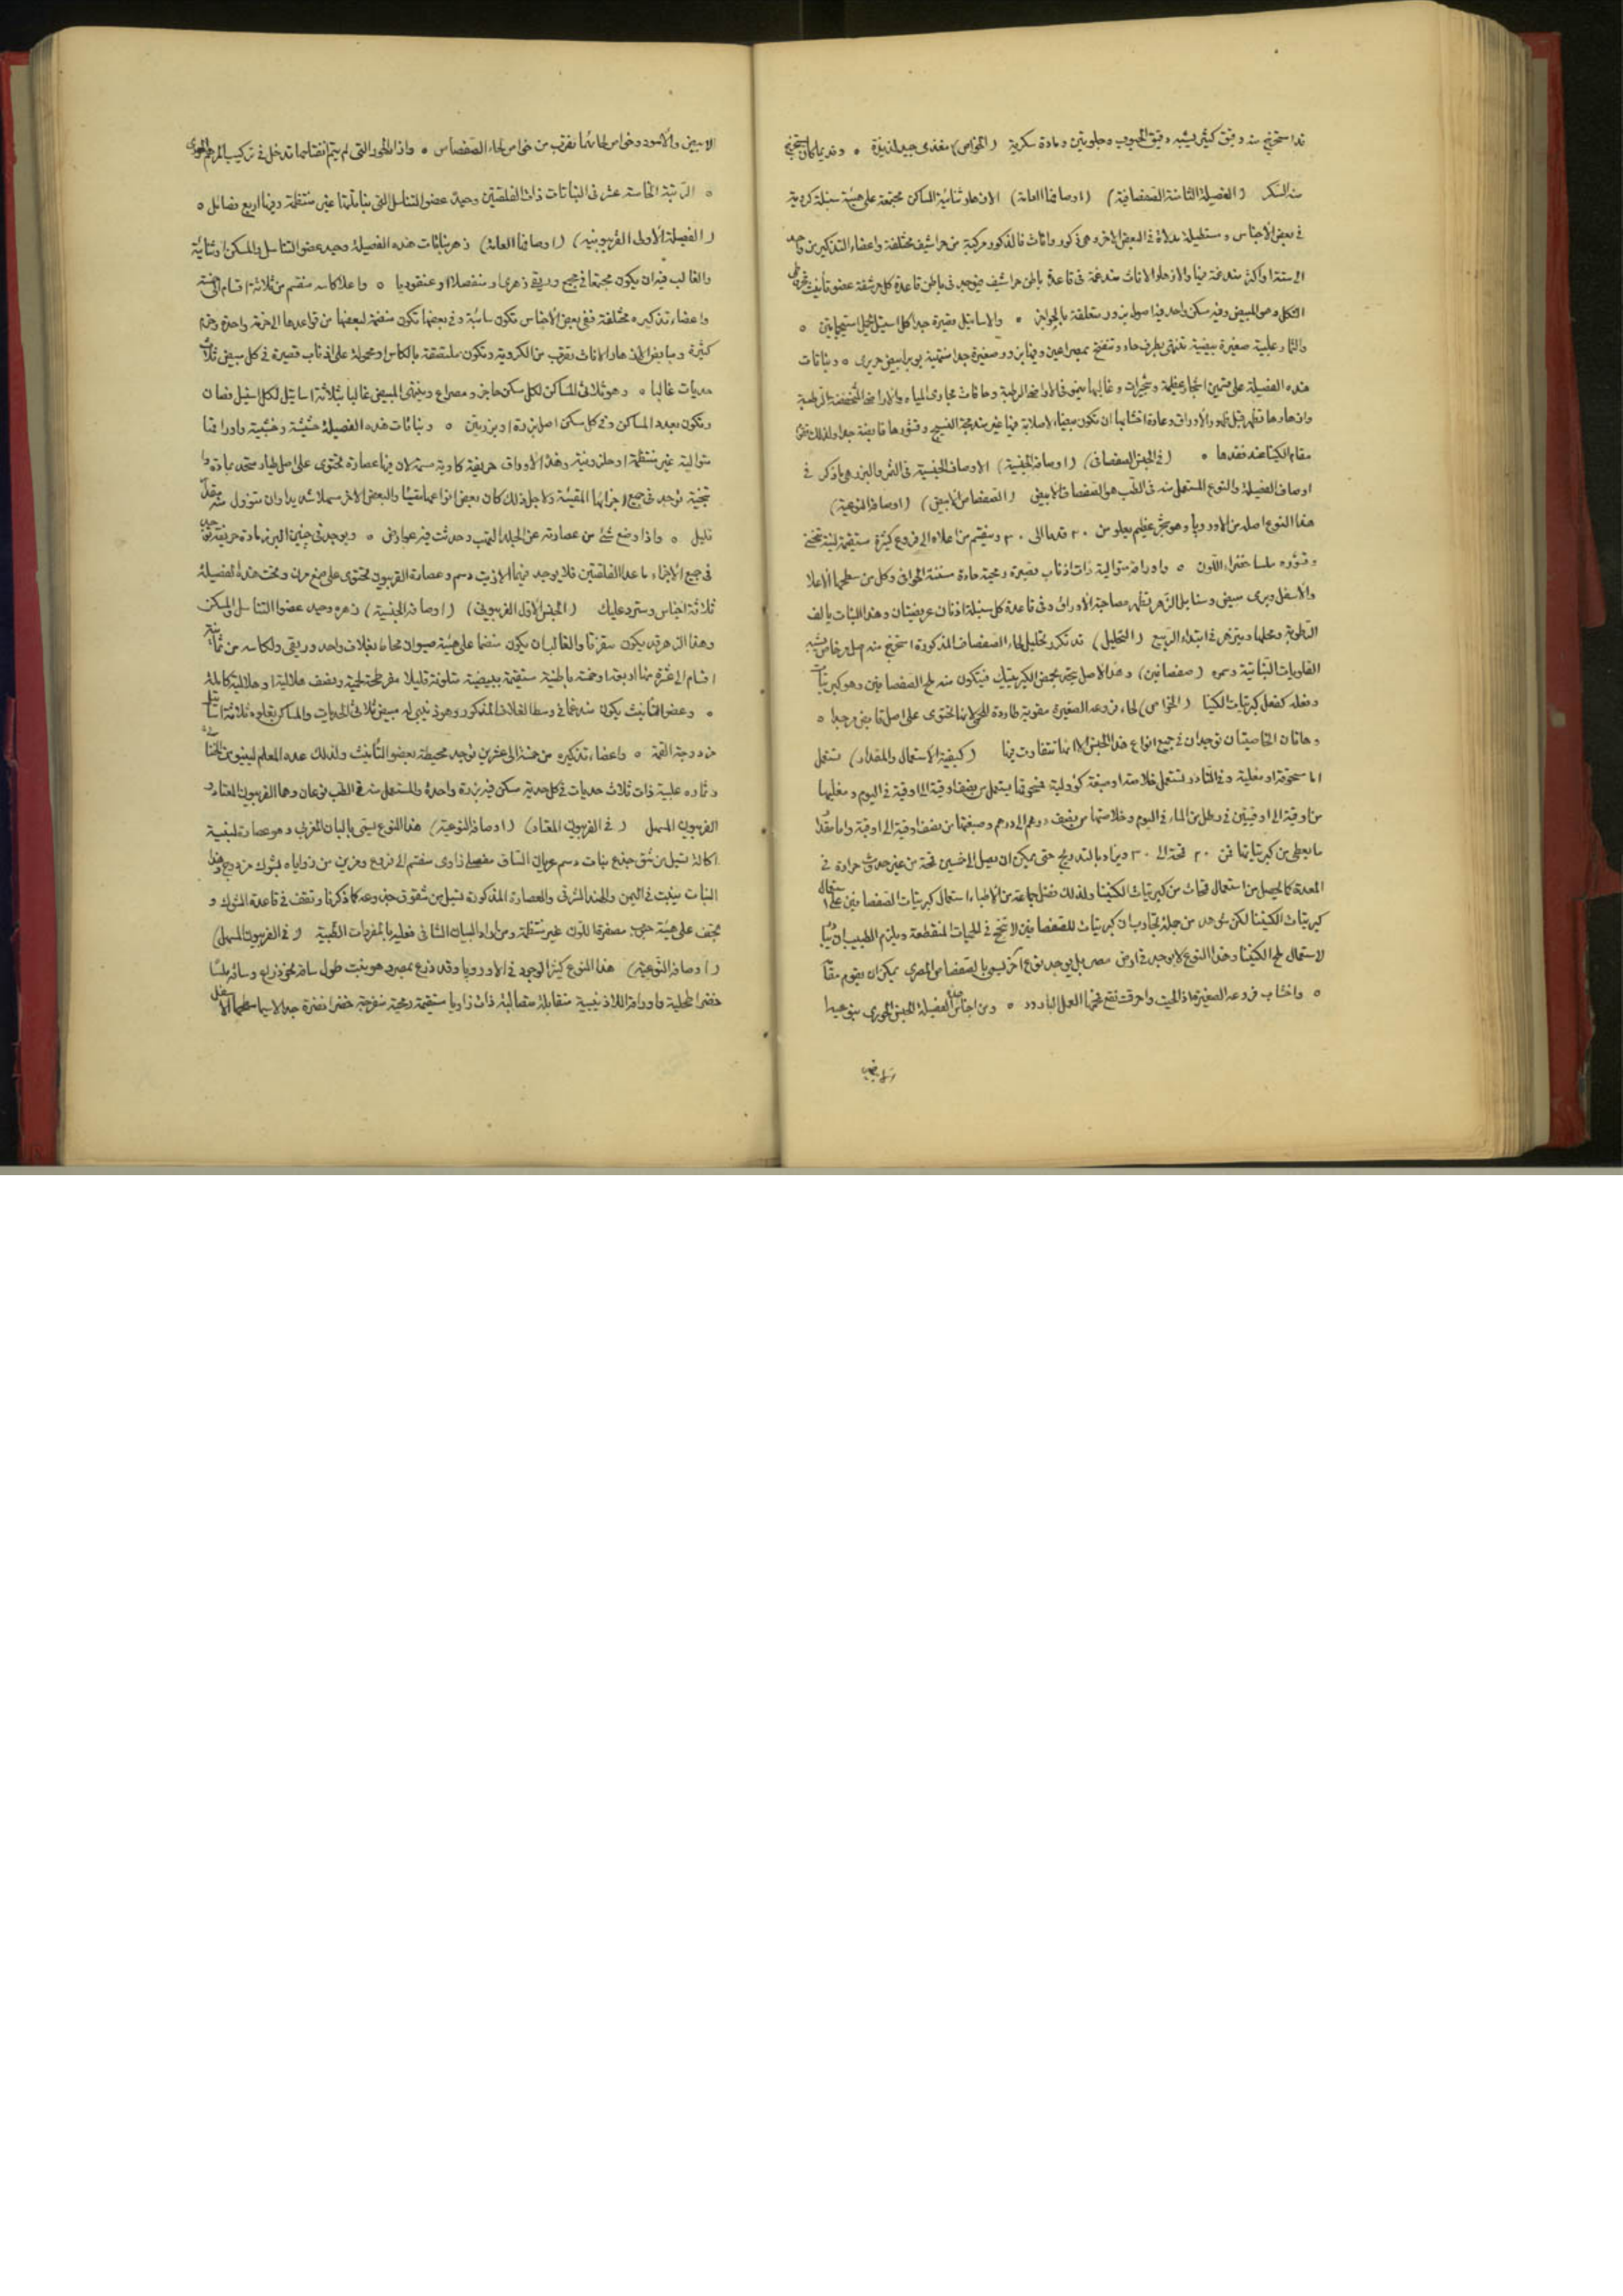 قد استخرج منه دقيق كثير يشبه دقيق الحبوب وجلوتين ومادة سكرية (الخواص) مغذى جيد لذيذة ٥ وقد يمكن ان يستخرج
منه السكر (الفصيلة الثامنة الصفصافية) (اوصافها العامة) الازهار ثنائية المساكن مجتمعة على هيئة سنبلة كروية
فى بعض الاجناس ومستطيلة مدلاة فى البعض الاخر وهى ذكور واناث فالذكور مركبة من حراشيف مختلفة واعضاء التذكير من واحد
الى ستة او اكثر مندغمة فيها والازهار الاناث مندغمة فى قاعدة باطن حراشيف فيوجد فى باطن قاعدة كل حرشفة عضو تأنيث
الشكل وهو المبيض وفيه مسكن واحد فيه اصول بزور متعلقة بالجوانب ٥ والاستيل قصيرة جدا لكل استيل استيجماتين ٥
والثمار علبية صغيرة بيضية تنتهى بطرف حاد وتنفتح بمصراعين وفيها بزور صغيرة جدا منتهية بوبر ابيض حريرى ٥ ونباتات
هذه الفصيلة على قسمين اشجار عظيمة وشجيرات وغالبها ينبو فى الاراضى الرطبة وحافات مجارى المياه والاراضى المنخفضة الرطبة
وازهارها تظهر قبل تمام والاوراق وعادة اخشابها ان تكون بيضاء لا صلابة فيها غير مندمجة النسيج وقشورها قابضة جدا ولذلك
مقام الكينا عند فقدها ٥ (فى الجنس الصفصافى) (اوصافه الجنسية) الاوصاف الجنسية فى الثمر والبزر هى ما ذكر فى
اوصاف الفصيلة والنوع المستعمل منه فى الطب هو الصفصاف الابيض (الصفصاف الابيض) (اوصافه النوعية)
هذا النوع اصله من الاوروبا وهو شجر عظيم يعلو من ٢٠ قدما الى ٣٠ وينقسم من اعلاه الى فروع كثيرة مستقيمة لينة تنحنى
وقشوره ملسا خضراء اللون ٥ واوراقه متوالية ذات اذناب قصيرة رمحية حادة مسننة الحوافى وكل من سطحها الاعلا
والاسفل وبرى مبيض وسنابل الزهر تظهر مصاحبة الاوراق وفى قاعدة كل سنبلة اذنان عريضتان وهذا النبات يألف
الرطوبة ومحلها ويزهر فى ابتداء الربيع (التحليل) قد تكرر تحليل لحاء الصفصاف المذكورة استخرج منه اصل خاص يشبه
القلويات النباتية وسموه (صفصافين) وهذا الاصل يتحد بحمض الكبريتيك فيتكون منه ملح الصفصافين وهو كبريتات
وفعله كفعل كبريتات الكينا (الخواص) لحاء فروعه الصغيرة مقوية طاردة للحمى لانها تحتوى على اصل قابض مر جدا ٥
وهاتان الخاصيتان توجدان فى جميع انواع هذا الجنس الا انها تتفاوت فيها (كيفية الاستعمال والمقدار) تستعمل
اما مسحوقة او مغلية وفى النادر تستعمل خلاصة او صبغة كؤولية فمسحوقها يستعمل من نصف اوقية الى اوقية فى اليوم ومغليها
من اوقية الى اوقيتين فى رطل من الماء فى اليوم وخلاصتها من نصف درهم الى درهم وصبغتها من نصف اوقية الى اوقية واما مقدار
ما يعطى من كبريتاتها فمن ٢٠ قمحة الى ٣٠ ويزاد بالتدريج حتى يمكن ان يصل الى خمسين قمحة من غير حدوث حرارة فى
المعدة كما يحصل من استعمال قمحات من كبريتات الكينا ولذلك فضل جماعة من الاطباء استعمال كبريتات الصفصافين على استعمال
كبريتات الكينا لكن شوهد من جملة تجارب ان كبريتات الصفصافين لا تنجح فى الحميات المنقطعة ويلزم الطبيب ان
لاستعمال ملح الكينا وهذا النوع لا يوجد فى ارض مصر بل يوجد نوع آخر يسمى بالصفصاف المصرى يمكن ان يقوم مقامه
٥ واخشاب فروعه الصغيرة اذا احرقت نفع فحمها لعمل البارود ٥ ومن اجناس هذه الفصيلة الجنس الحورى
الابيض والاسود وخواص لحائها تقرب من خواص لحاء الصفصاف ٥ وازرار الحور التى لم يتم انفتاحها تدخل فى تركيب المرهم الحورى
٥ الرتبة الخامسة عشر فى النباتات ذات الفلقتين وحيدة عضو التناسل التى نباتاتها غير منتظمة وفيها اربع فصائل ٥
(الفصيلة الاولى الفربيونية) (اوصافها العامة) زهر نباتات هذه الفصيلة وحيد عضو التناسل والمسكن او ثنائيه
والغالب فيه ان يكون مجتمعا فى مجمع وريقى زهرى او منفصلا او عنقوديا ٥ واعلا كاسه منقسم من ثلاثة اقسام الى ستة
واعضاء تذكيره مختلفة ففى بعض الاجناس تكون سائبة وفى بعضها تكون منضمة لبعضها من قواعدها الى حزمة واحدة او حزم
كثيرة ومبايض الازهار الاناث تقرب من الكروية وتكون ملتصقة بالكاس او محمولة على اذناب قصيرة فى كل مبيض ثلاث
حدبات غالبا ٥ وهو ثلاثى المساكن لكل مسكن حاجز ومصراع وينتهى المبيض غالبا بثلاثة استيل لكل استيل فصان
وتكون بعدد المساكن وفى كل مسكن اصل بزرة او بزرتين ٥ ونباتات هذه الفصيلة حشيشية وخشبية واوراقها
متوالية غير منتظمة او حلزونية وهذه الاوراق حريفة كاوية سمية لان فيها عصارة تحتوى على اصل طيار متحد بمادة
توجد فى جميع اجزائها المقيئة ولاجل ذلك كان بعض انواعها مقيئا والبعض الاخر مسهلا شديدا وان تنوول منه مقدار
قليل ٥ واذا وضع شئ من عصارته على الجلد التهب وحدثت فيه عوارض ٥ ويوجد فى جنين البزر مادة حريفة
فى جميع الاجزاء ما عدا الفلقتين فلا يوجد فيهما الا زيت دسم وعصارة الفربيون تحتوى على صمغ مرن وتحت هذه الفصيلة
ثلاثة اجناس وسترد عليك (الجنس الاول الفربيونى) (اوصافه الجنسية) زهره وحيد عضو التناسل والمسكن
وهذا الزهر قد يكون متفرقا والغالب ان يكون منضما على هيئة صيوان محاط بغلاف واحد وريقى ولكاسه من ثمانية
اقسام الى عشرة منها اربعة او خمسة باطنية مستقيمة بيضية متلونة قليلا مفرطحة لحمية ونصف هلالية او هلالية كاملة
٥ وعضو التأنيث يكون مندغما فى وسط الغلاف المذكور وهو ذنيبى له مبيض ثلاثى الحدبات والمساكن يعلوه ثلاثة استيل
مزدوجة القمة ٥ واعضاء تذكيره من خمسة الى عشرين توجد محيطة بعضو التأنيث ولذلك عده المعلم لينيو من الخنثى
وثماره علبية ذات ثلاث حدبات فى كل حدبة مسكن فيه بزرة واحدة والمستعمل منه فى الطب نوعان وهما الفربيون المعتاد و
الفربيون المسهل (فى الفربيون المعتاد) (اوصافه النوعية) هذا النوع يسمى بالبان المغربى وهو عصارة لبنية
اكالة تسيل من شق جذع نبات دسم عريان الساق مفصلى زاوى منقسم الى فروع ومزين من زواياه بشوك مزدوج وهذا
النبات ينبت فى اليمن والهند الشرقى والعصارة المذكورة تسيل من شقوق جذوعه كما ذكرنا وتقف فى قاعدة الشوك و
تجف على هيئة حبوب مصفرة اللون غير منتظمة ومن اراد البيان الشافى فعليه بالمفردات الطبية (فى الفربيون المسهل)
(اوصافه النوعية) هذا النوع كثير الوجود فى الاوروبا وقد زرع بمصر وهو نبت طول ساقه نحو ذراع وساقه ملسا
خضرا محلية واوراقه اللاذنيبية متقابلة متصالبة ذات زوايا مستقيمة رمحية منفرجة خضرا نضرة جدا لا سيما سطحها الاسفل